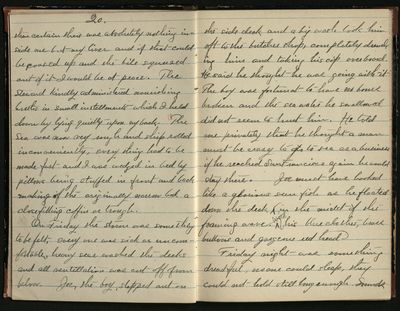 20.
then certain there was absolutely nothing in-
side me but my liver and if that could
be passed up and the bile squeezed
out of it I would be at peace. The
steward kindly administered nourishing
broths in small installments which I held
down by lying quietly upon my back. The
sea was very rough and ship rolled
inconveniently, every thing had to be
made fast and I was wedged in bed by
pillows being stuffed in front and back
making of the ordinarily narrow bed a
close fitting coffin or trough.
On Friday the storm was something
to be felt, every one was sick or uncom-
fortable, heavy seas washed the decks
and all ventilation was cut off from
below. Joe, the boy, stepped out on
the side deck and a big wave took him
off to the butcher shop, completely drench-
ing him and taking his cap overboard.
He said he thought he was going with it.
The boy was fortunate to have no bones
broken and the sea water he swallowed
did not seem to hurt him. He told
me privately that he thought a man
must be crazy to go to sea as a business
if he reached San Francisco again he would
stay there. Joe must have looked
like a glorious sun fish as he floated
down the deck in the midst of the
foaming wave with his blue clothes, brass
buttons and gorgeous red head.
Friday night was something
dreadful, no one could sleep, they
could not hold still long enough. Sounds